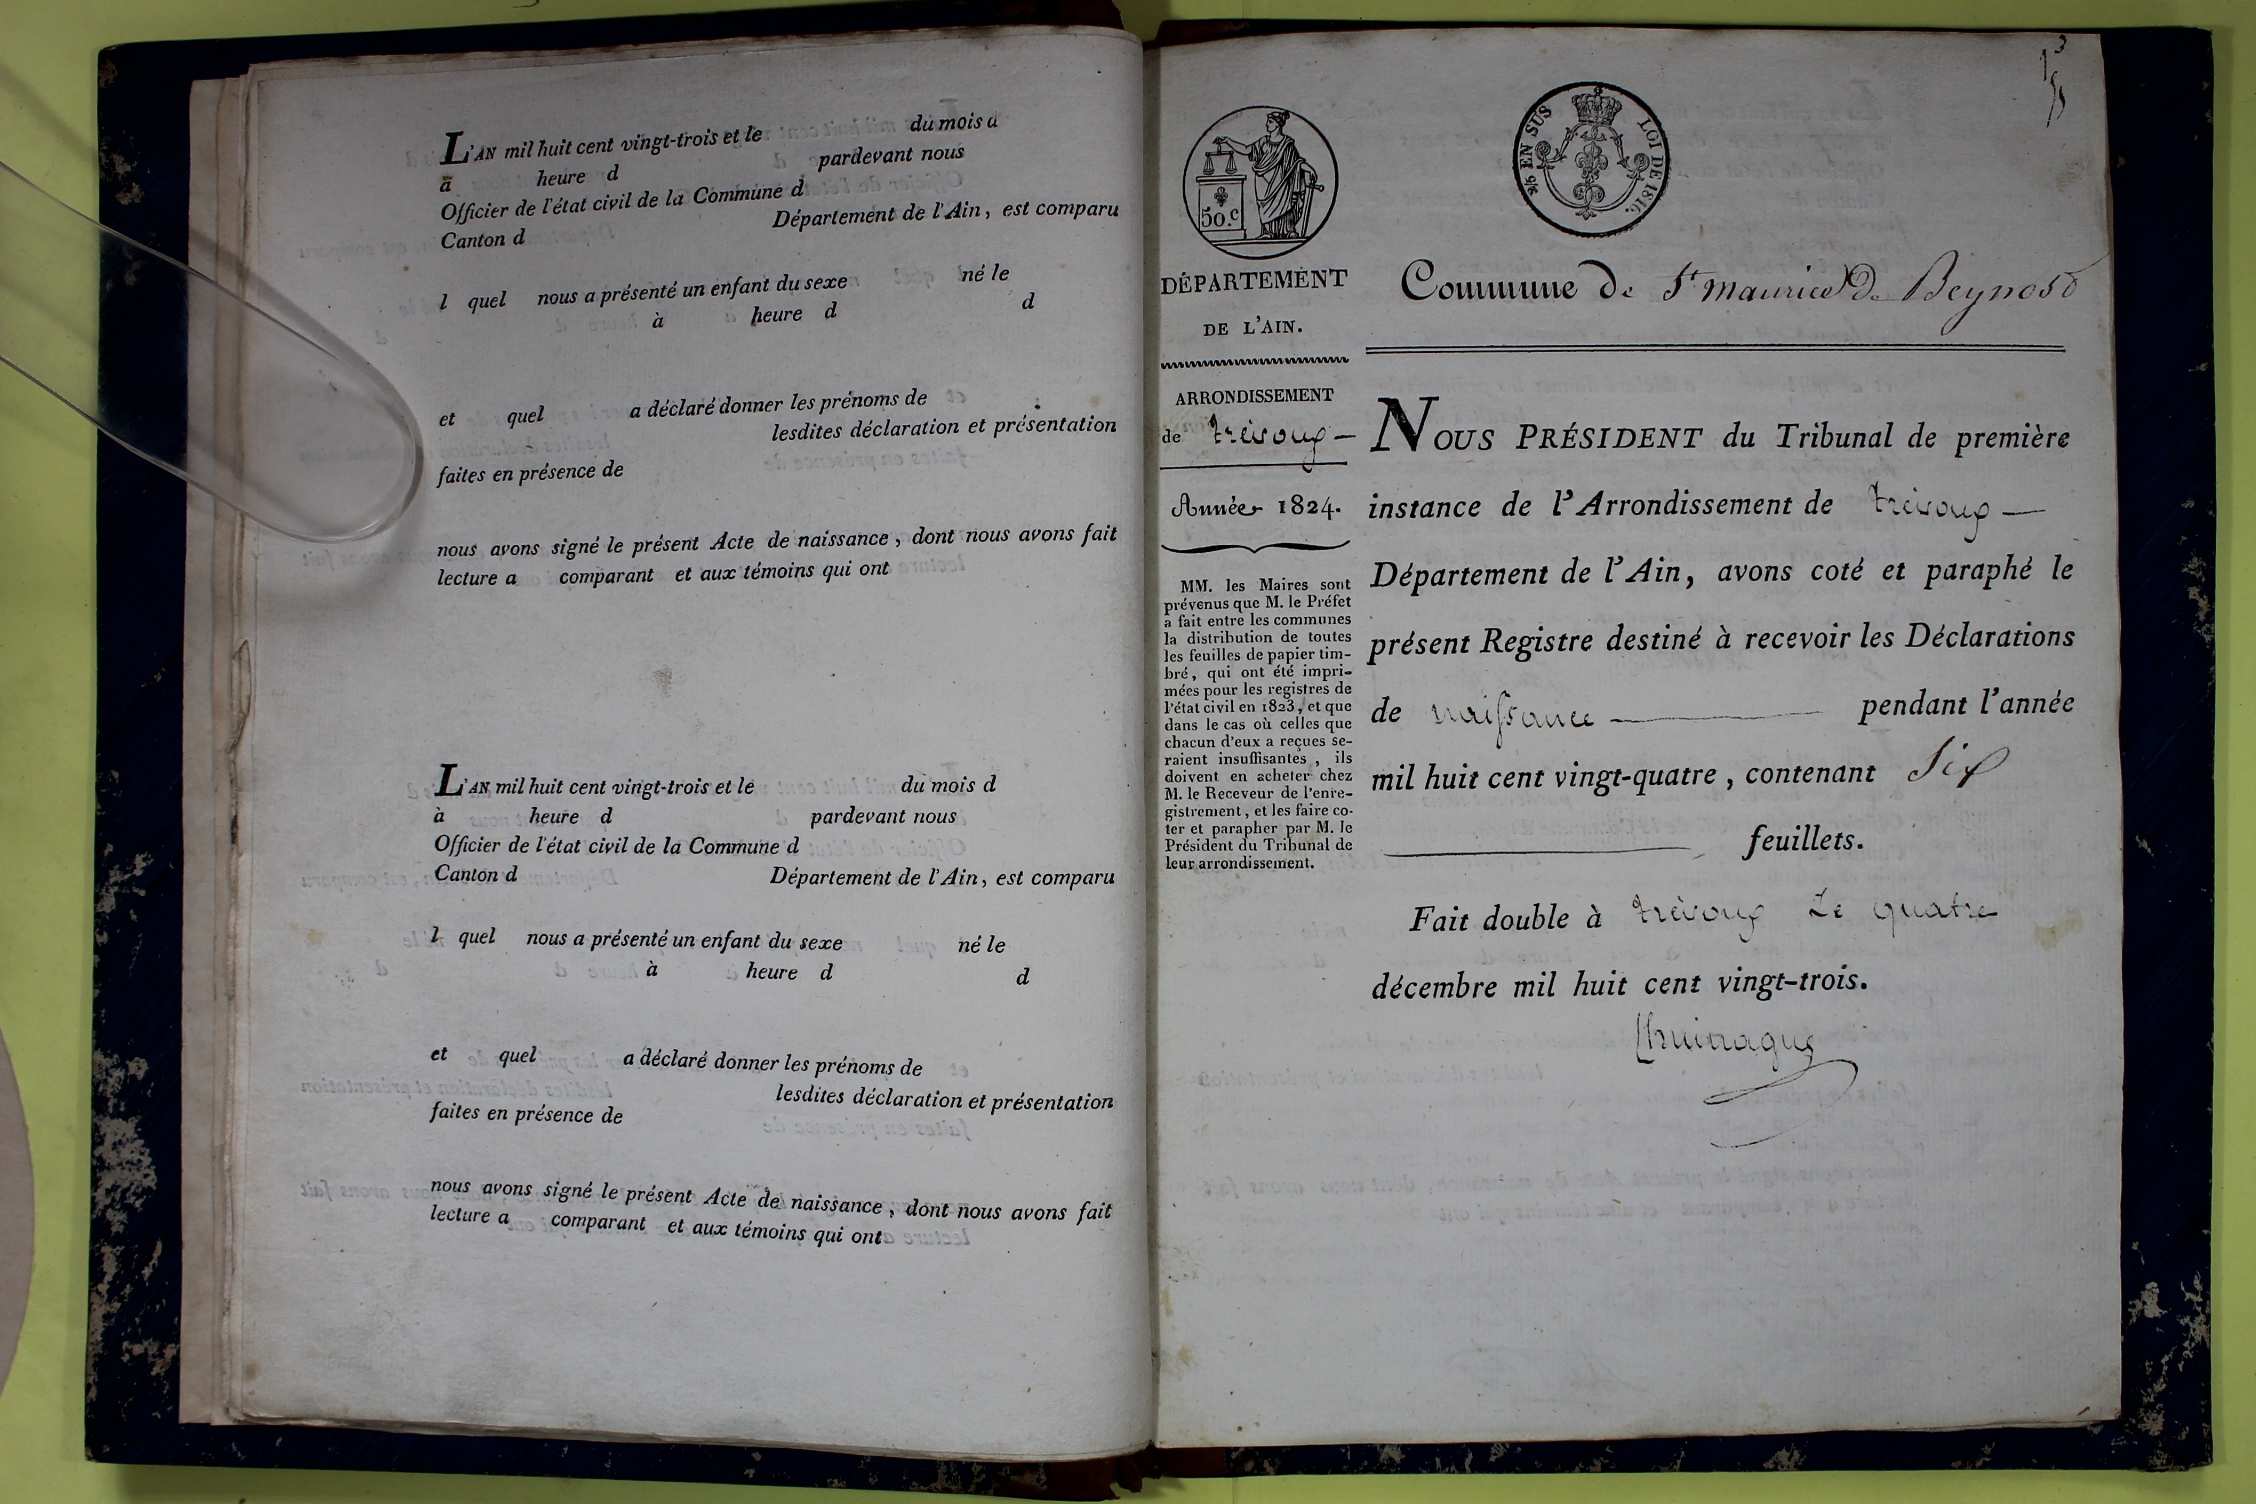 L'AN mil huit cent vingt-trois et le du mois d
à heure d pardevant nous
Officier de l'état civil de la Commune d
Canton d Département de l'Ain, est comparu
l quel nous a présenté un enfant du sexe né le
à heure d d
et quel a déclaré donner les prénoms de
lesdites déclaration et présentation
faites en présence de
nous avons signé le présent Acte de naissance, dont nous avons fait
lecture a comparant et aux témoins qui ont
L'AN mil huit cent vingt-trois et le du mois d
à heure d pardevant nous
Officier de l'état civil de la Commune d
Canton d Département de l'Ain, est comparu
l quel nous a présenté un enfant du sexe né le
à heure d d
et quel a déclaré donner les prénoms de
lesdites déclaration et présentation
faites en présence de
nous avons signé le présent Acte de naissance, dont nous avons fait
lecture a comparant et aux témoins qui ont
50.c
EN SUS LOI DE 1816.
DÉPARTEMENT
DE L'AIN.
ARRONDISSEMENT
de trévoux
Année 1824.
MM. les Maires sont
prévenus que M. le Préfet
a fait entre les communes
la distribution de toutes
les feuilles de papier tim-
bré, qui ont été impri-
mées pour les registres de
l'état civil en 1823, et que
dans le cas où celles que
chacun d'eux a reçues se-
raient insuffisantes, ils
doivent en acheter chez
M. le Receveur de l'enre-
gistrement, et les faire co-
ter et parapher par M. le
Président du Tribunal de
leur arrondissement.
Commune de St maurice de Beynost
NOUS PRÉSIDENT du Tribunal de première
instance de l'Arrondissement de trévoux
Département de l'Ain, avons coté et paraphé le
présent Registre destiné à recevoir les Déclarations
de naissance pendant l'année
mil huit cent vingt-quatre, contenant Six
feuillets.
Fait double à trévoux Le quatre
décembre mil huit cent vingt-trois.